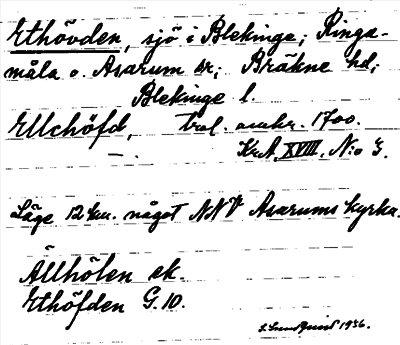 Ethövden, sjö i Blekinge; Ringa-
måla o. Asarum sr; Bräkne hd;
Blekinge l.
Ellchöfd, trol. omkr. 1700.
— . KrA XVIII. N:o 3.
Läge 12 km. något NNV Asarums kyrka.
Ällhölen ek.
Ethöfden G.10.
E. Lundquist 1936.